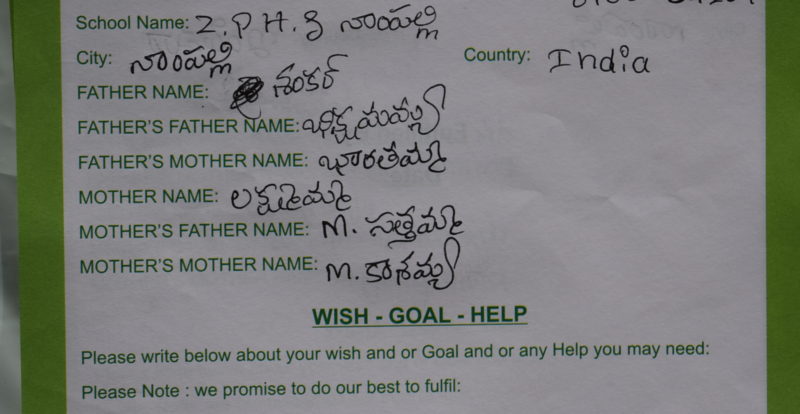 School Name: Z.P.H.S నాంపల్లి
City: నాంపల్లి Country: India
FATHER NAME: శంకర్
FATHER'S FATHER NAME: భిక్షమయ్య
FATHER'S MOTHER NAME: భారతమ్మ
MOTHER NAME: లక్ష్మమ్మ
MOTHER'S FATHER NAME: M. సత్తమ్మ
MOTHER'S MOTHER NAME: M. కాశయ్య
WISH - GOAL - HELP
Please write below about your wish and or Goal and or any Help you may need:
Please Note : we promise to do our best to fulfil: